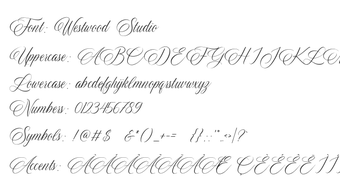 Font: Westwood Studio
Uppercase: ABCDEFGHIJKLM
Lowercase: abcdefghijklmnopqrstuvwxyz
Numbers: 0123456789
Symbols: !@#$ &*()_+-= {};:'",.<>/?
Accents: ÀÁÂÃÄÅÆ ÇÈÉÊË